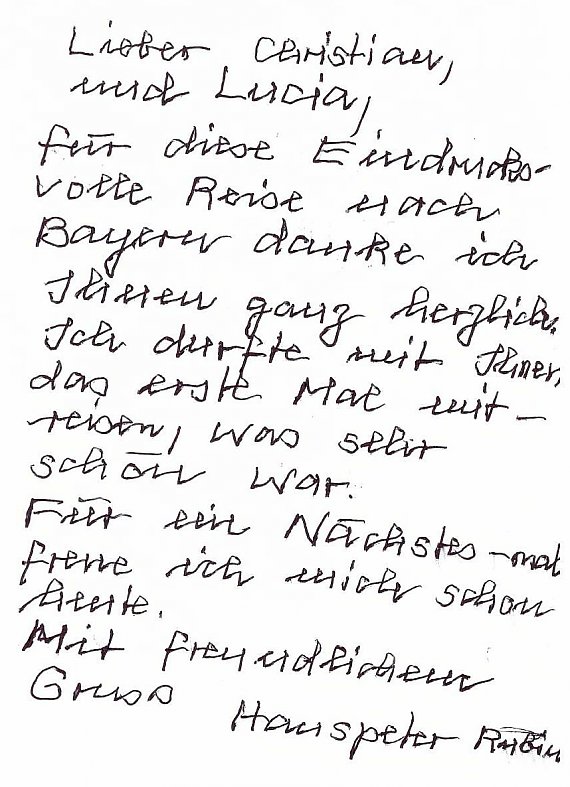 Lieber Christian,
und Lucia,
für diese Eindrucks-
volle Reise nach
Bayern danke ich
Ihnen ganz herzlich.
Ich durfte mit Ihnen,
das erste Mal mit-
reisen, was sehr
schön war.
Für ein Nächstes-mal
freue ich mich schon
heute.
Mit freundlichem
Gruss
Hanspeter Rubin